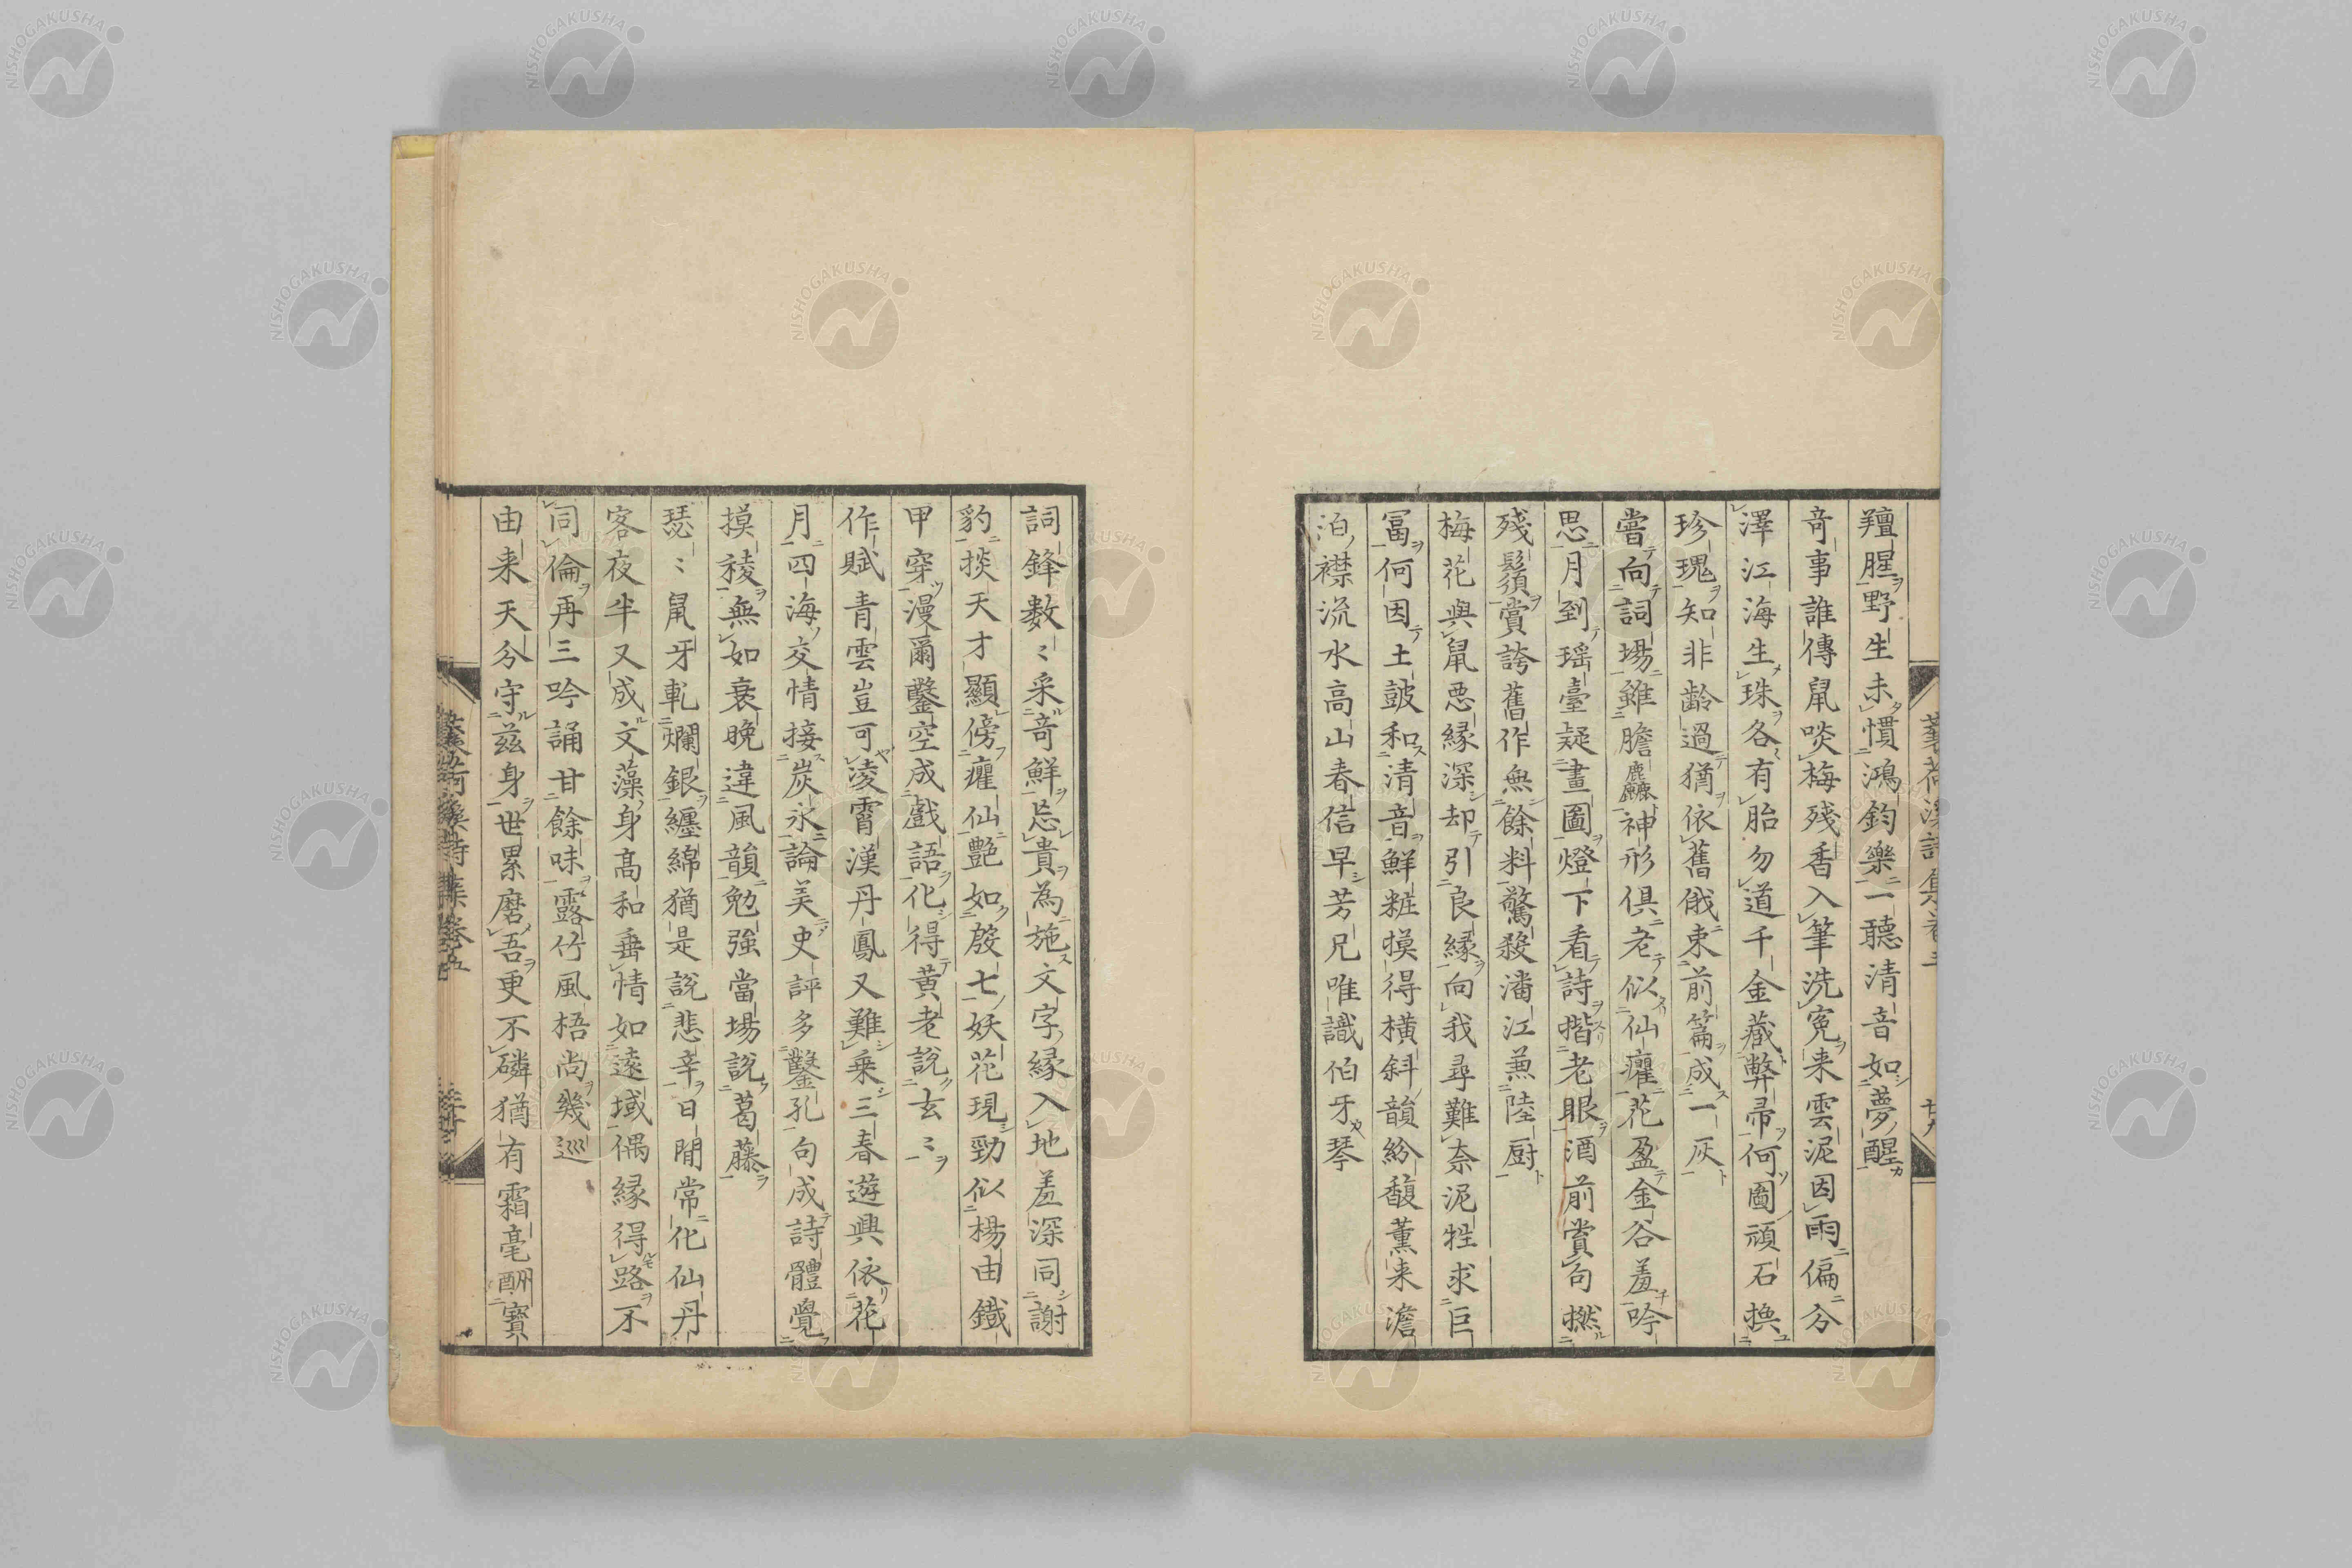 羶腥野生未慣鴻鈞樂一聽清音如夢醒
竒事誰傳鼠啖梅殘香入筆洗寃来雲泥因雨偏分
澤江海生珠各有胎勿道千金藏弊帚何圖頑石換
珍瑰知非齡過猶依舊俄束前篇成一灰
嘗向詞場雖膽麤神形倶老似仙癯花盈金谷羞吟
思月到瑶臺疑畫圖燈下看詩揩老眼酒前賞句撚
殘鬚賞誇舊作無餘料驚殺潘江兼陸厨
梅花與鼠悪縁深却引良縁向我尋難奈泥牲求巨
冨何因土鼓和清音鮮粧摸得横斜韻紛馥薫来澹
泊襟流水高山春信早芳兄唯識伯牙琴
詞鋒數〻采竒鮮忌貴為施文字縁入地羞深同謝
豹掞天才顯傍癯仙艶如殷七妖花現勁似楊由鐵
甲穿漫爾鑿空成戲語化得黄老説玄〻
作賦青雲豈可凌霄漢丹鳳又難乗三春遊興依花
月四海交情接炭氷論美史評多鑿孔句成詩體覺
摸稜無如衰晩違風韻勉強當場説葛藤
瑟〻鼠牙軋爛銀纏綿猶是説悲辛日閒常化仙丹
客夜半又成文藻身髙和垂情如遠域偶縁得路不
同倫再三吟誦甘餘味露竹風梧尚幾巡
由来天分守茲身世累磨吾更不磷猶有霜毫酬寳